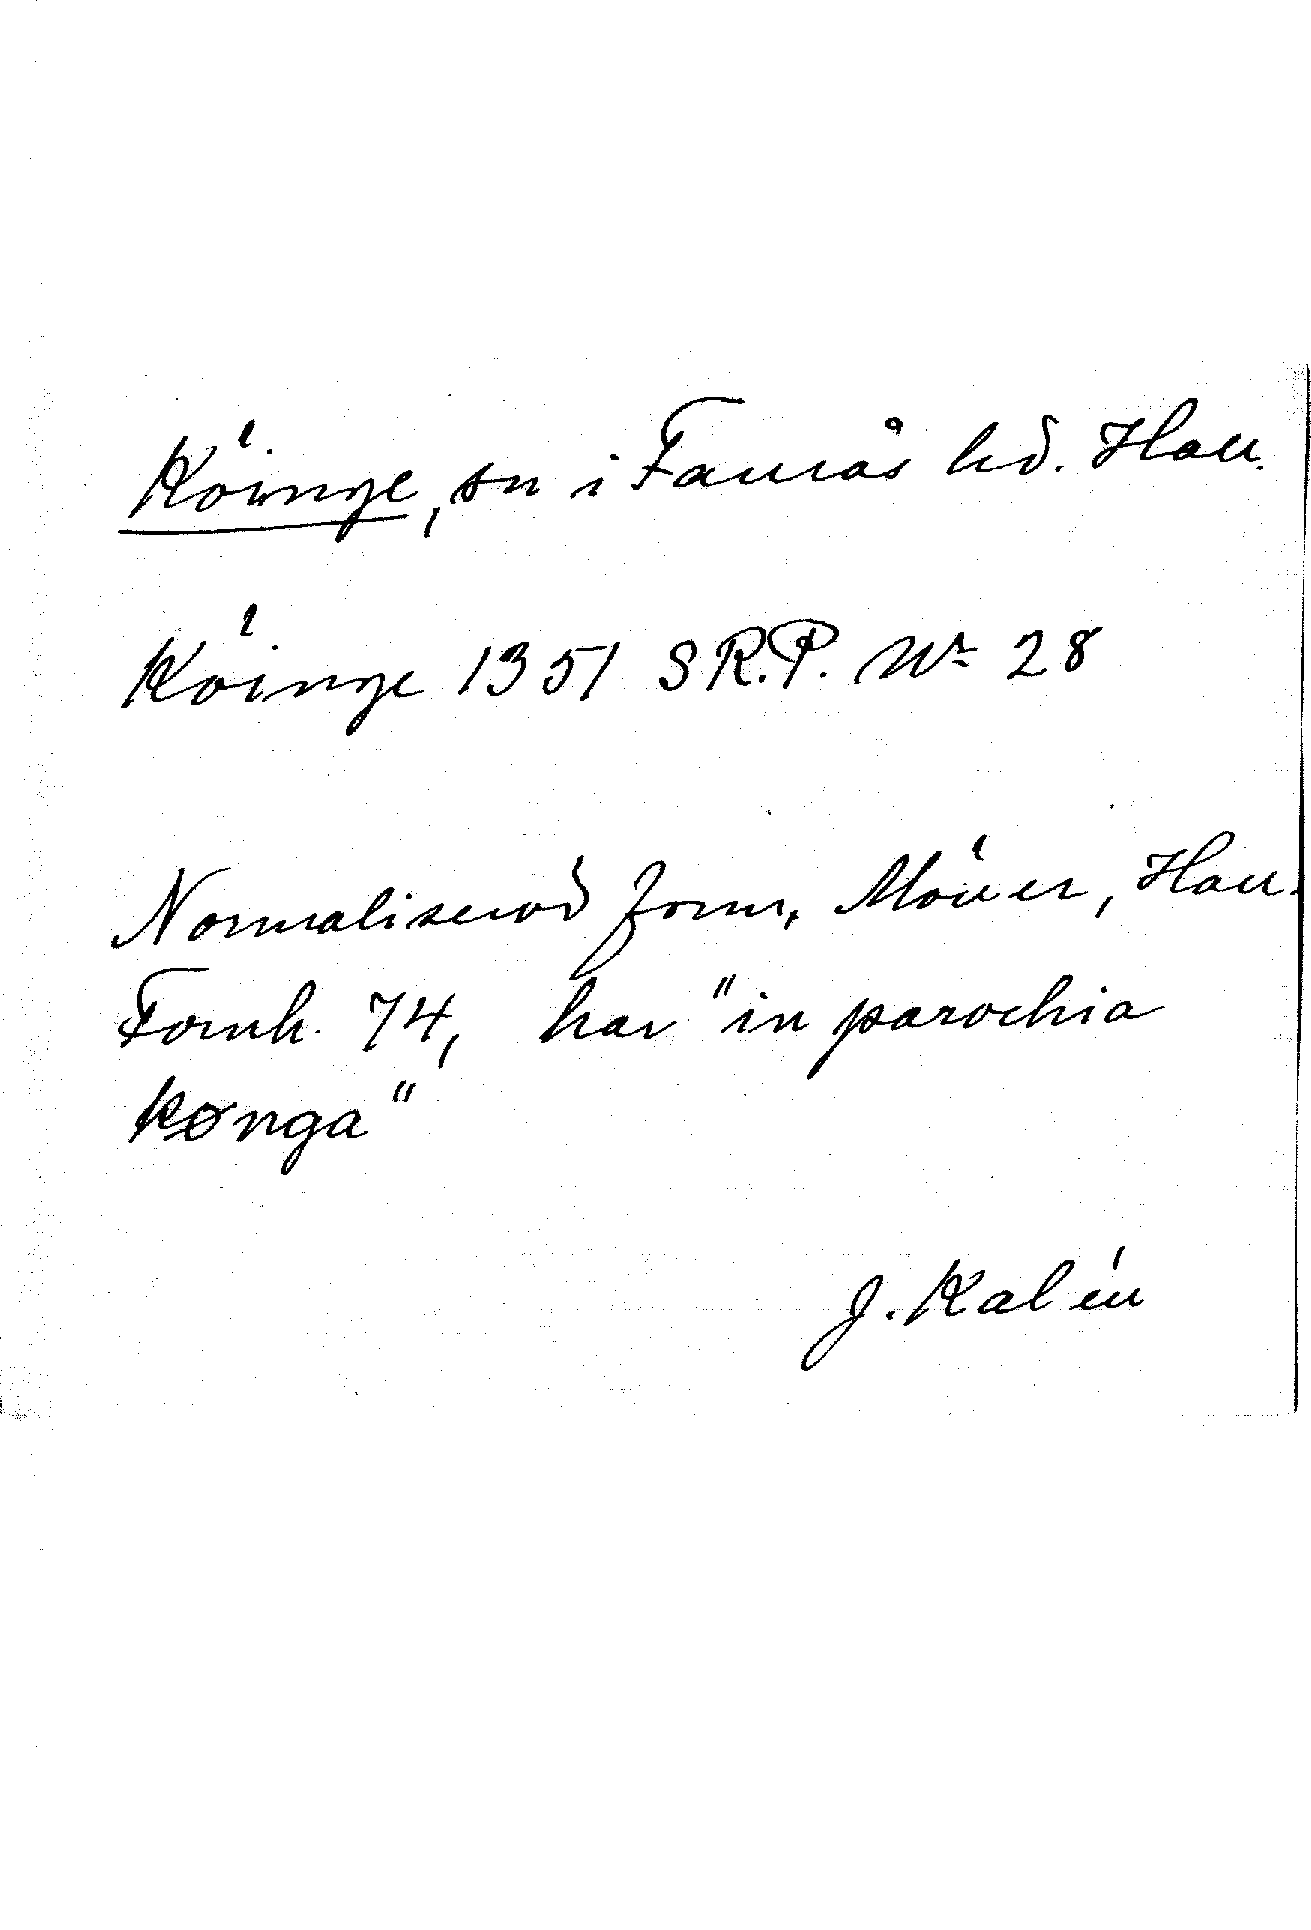 Köinge, sn i Faurås hd. Hall.
Köinge 1351 S R.P. Nr 28
Normaliserad form, Möller, Hall.
Fornh. 74, har "in parochia
Kønga"
J. Kalén